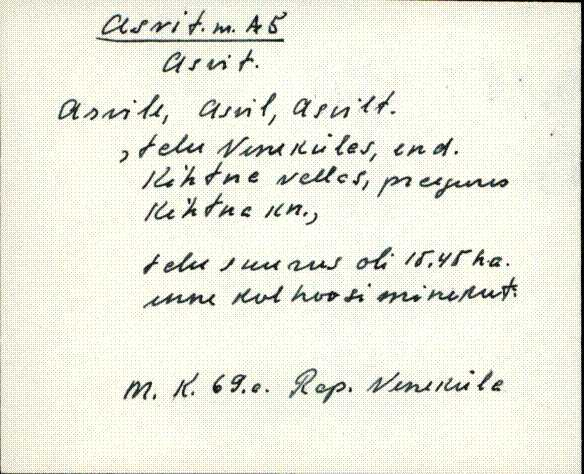 Asvit. m. A5
Asvit.
Asvile, Asvil, Asvilt.
, talu Veneküles, end.
Kehtna vallas, praegunes
Kehtna kn.,
talu suurus oli 15.45 ha.
enne kolhoosi minekut.
M. K. 69.a. Rap. Veneküla